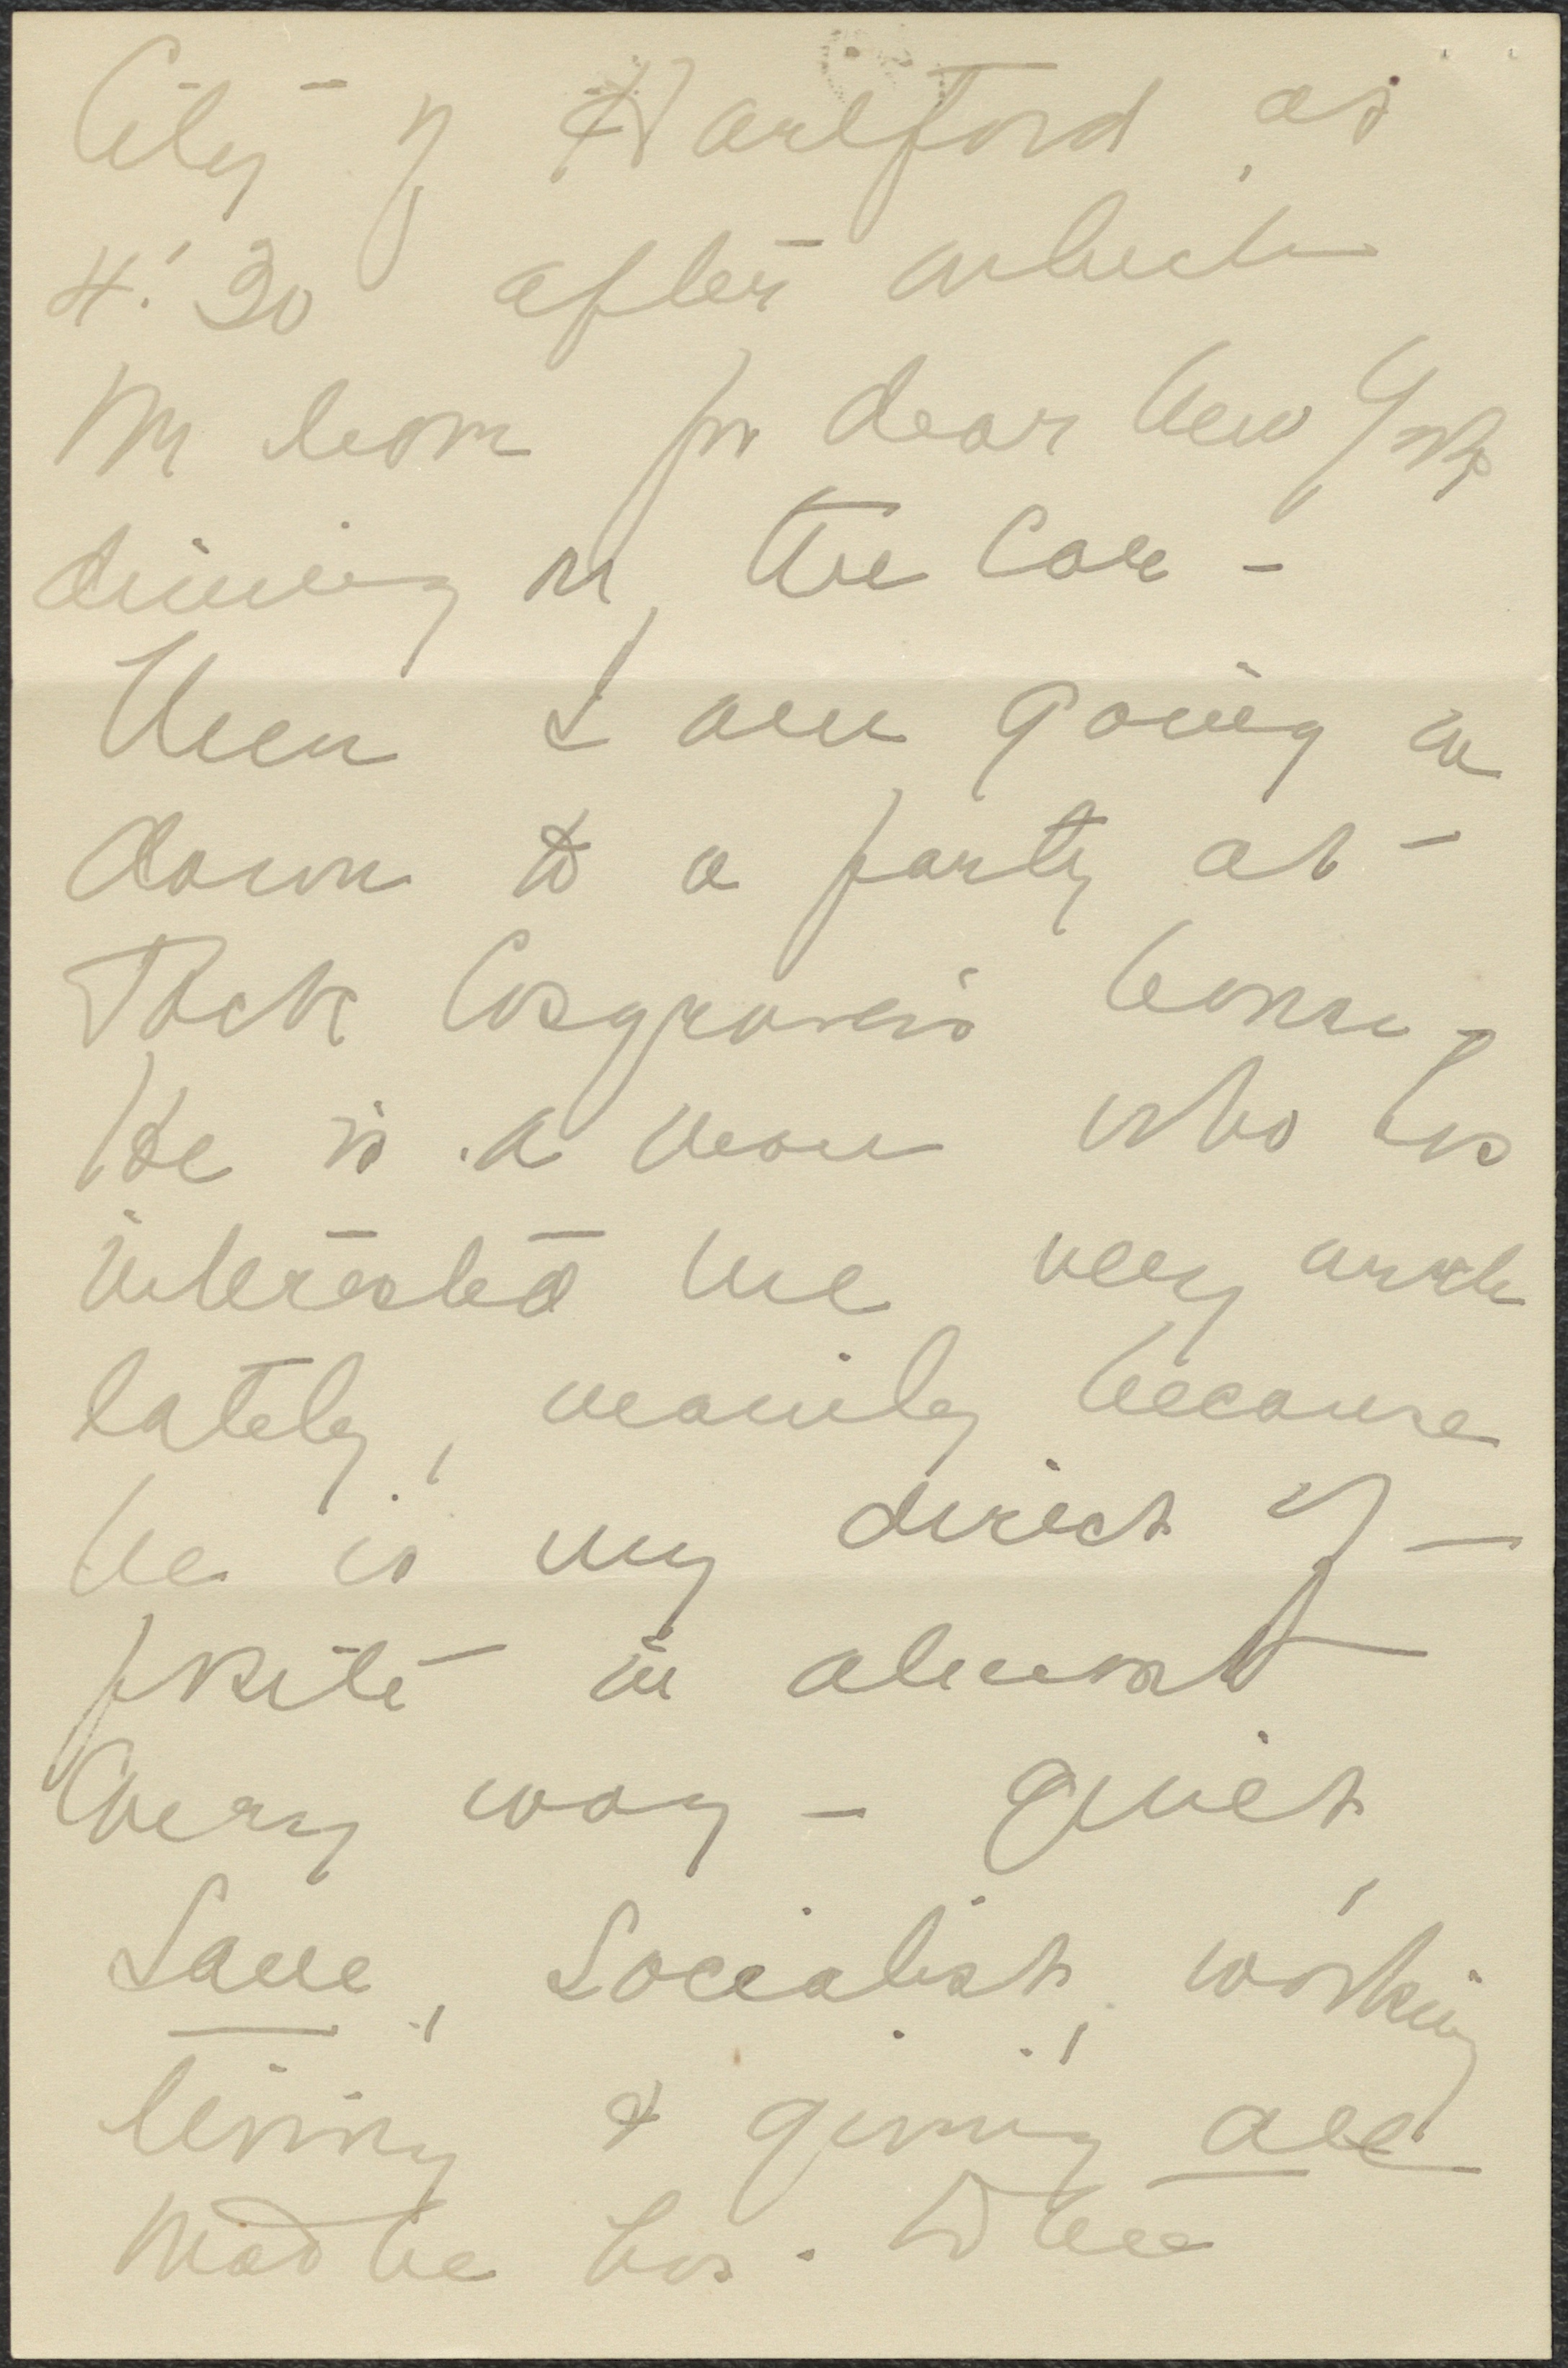 City of Hartford at
4:30 after which
we leave for dear New York
dining on the Car -
Then I am going in
down to a party at
Jack Cosgrove's home -
He is a man who has
interested me very much
lately, mainly because
he is my direct op-
posite in almost
every way - quiet,
Sane, Socialist, working
living & giving all
that he has. Well